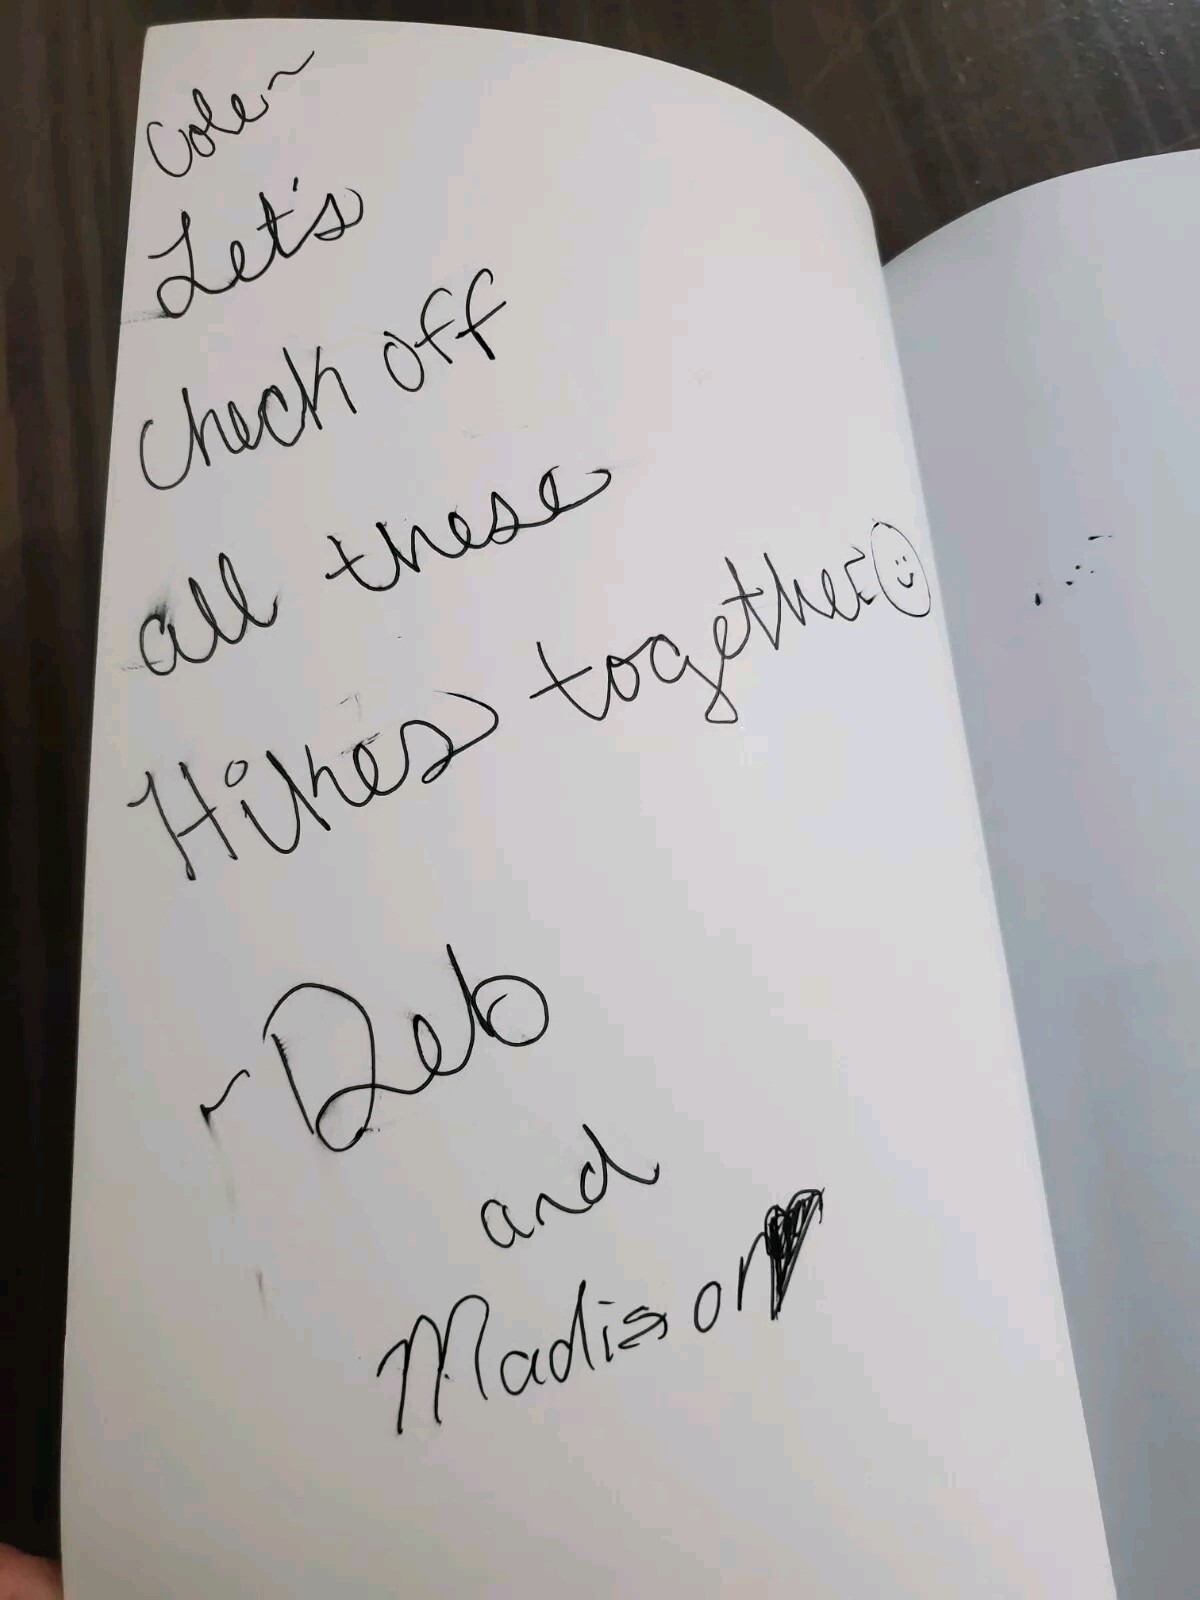 Cole~
Let's
check off
all these
Hikes together ☺
~Deb
and
Madison♥